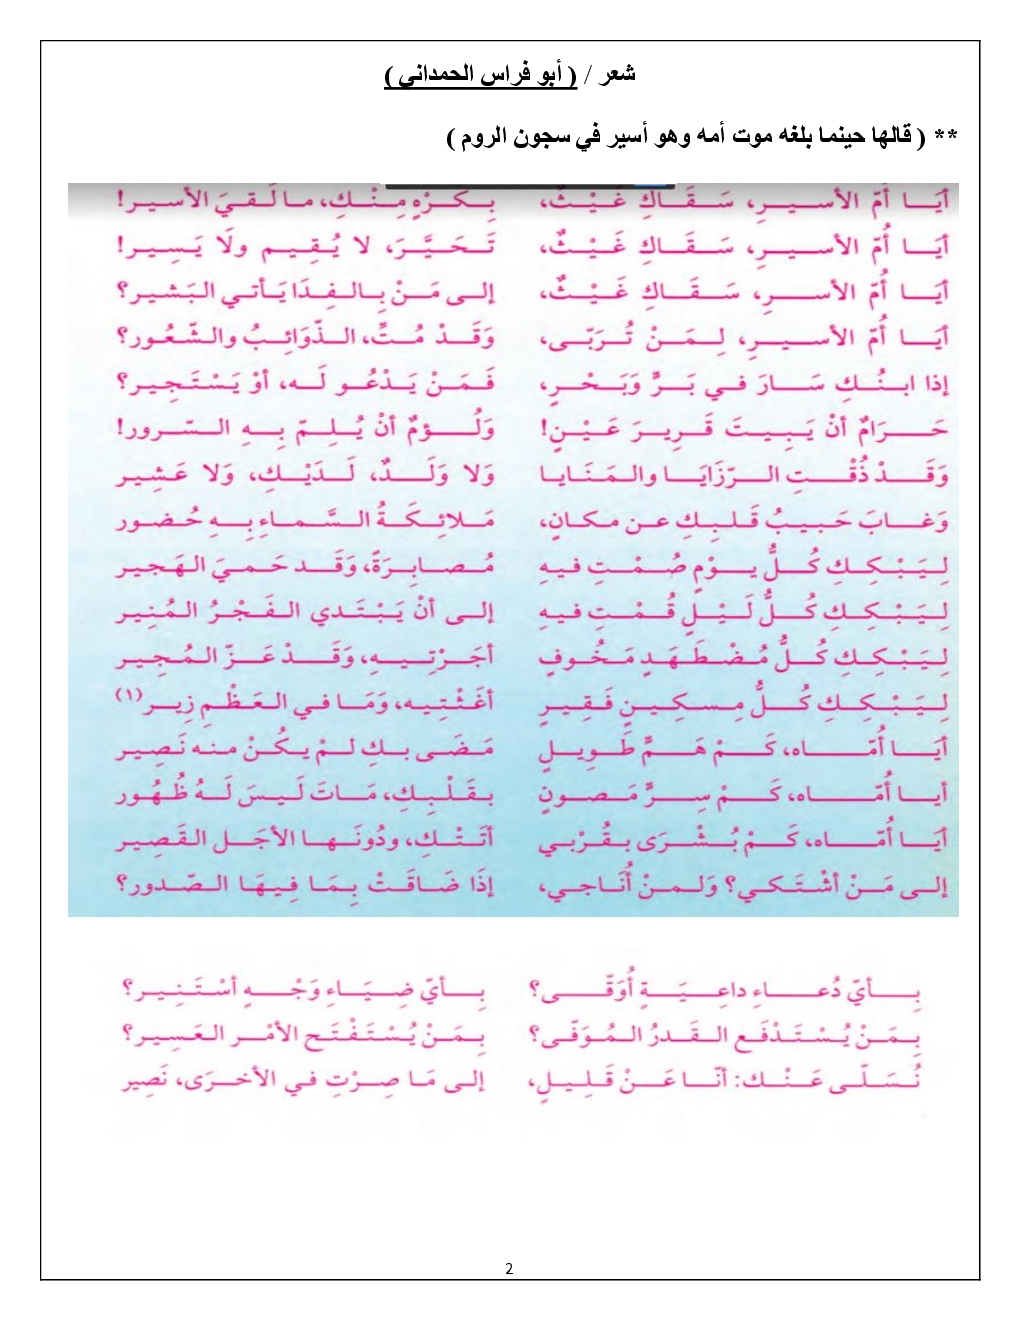 شعر / ( أبو فراس الحمداني )
** ( قالها حينما بلغه موت أمه وهو أسير في سجون الروم )
أيَا أُمّ الأسيرِ، سَقَاكِ غَيْثٌ، بكُرْهٍ مِنْكِ، ما لَقيَ الأسير!
أيَا أُمّ الأسيرِ، سَقَاكِ غَيْثٌ، تَحَيَّرَ، لا يُقِيم ولَا يَسِير!
أيَا أُمّ الأسرِ، سَقَاكِ غَيْثٌ، إلى مَنْ بِالفِدَا يَأتي البَشير؟
أيَا أُمّ الأسيرِ، لِمَنْ تُرَبّى، وَقَدْ مُتِّ، الذّوَائِبُ والشّعُور؟
إذا ابنُكِ سَارَ في بَرٍّ وَبَحْرٍ، فَمَنْ يَدْعُو لَه، أوْ يَسْتَجِير؟
حَرَامٌ أنْ يَبِيتَ قَرِيرَ عَيْنٍ! وَلُؤمٌ أنْ يُلِمّ بِهِ السّرور!
وَقَدْ ذُقْتِ الرّزَايَا والمَنَايا وَلا وَلَدٌ، لَدَيْكِ، وَلا عَشِير
وَغابَ حَبيبُ قَلبِكِ عن مكانٍ، مَلائِكَةُ السَّماءِ بِهِ حُضور
لِيَبْكِكِ كُلُّ يوْمٍ صُمْتِ فيهِ مُصابِرَةً، وَقَد حَميَ الهَجير
لِيَبْكِكِ كُلُّ لَيْلٍ قُمْتِ فيهِ إلى أنْ يَبْتَدي الفَجْرُ المُنِير
لِيَبْكِكِ كُلُّ مُضْطَهَدٍ مَخُوفٍ أجَرْتِيهِ، وَقَدْ عَزّ المُجِير
لِيَبْكِكِ كُلُّ مِسكِينٍ فَقِيرٍ أغَثْتِيه، وَمَا في العَظْمِ زِير (١)
أيَا أُمّاه، كَمْ هَمٍّ طَوِيلٍ مَضَى بكِ لمْ يكُنْ منه نَصِير
أيا أُمّاه، كَمْ سِرٍّ مَصونٍ بقَلْبِكِ، مَاتَ لَيسَ لَهُ ظُهُور
أيَا أُمّاه، كَمْ بُشْرَى بقُرْبي أتَتْكِ، ودُونَها الأجَل القَصِير
إلى مَنْ أشْتَكي؟ وَلمنْ أُنَاجي، إذَا ضَاقَتْ بِمَا فِيهَا الصّدور؟
بِأيّ دُعاءِ داعِيَةٍ أُوَقّى؟ بِأيّ ضِيَاءِ وَجْهٍ أسْتَنِير؟
بِمَنْ يُسْتَدْفَع القَدرُ المُوَفّى؟ بِمَنْ يُسْتَفْتَح الأمْر العَسِير؟
نُسَلّى عَنْك: أنّا عَنْ قَلِيلٍ، إلى مَا صِرْتِ في الأخرَى، نَصِير
2